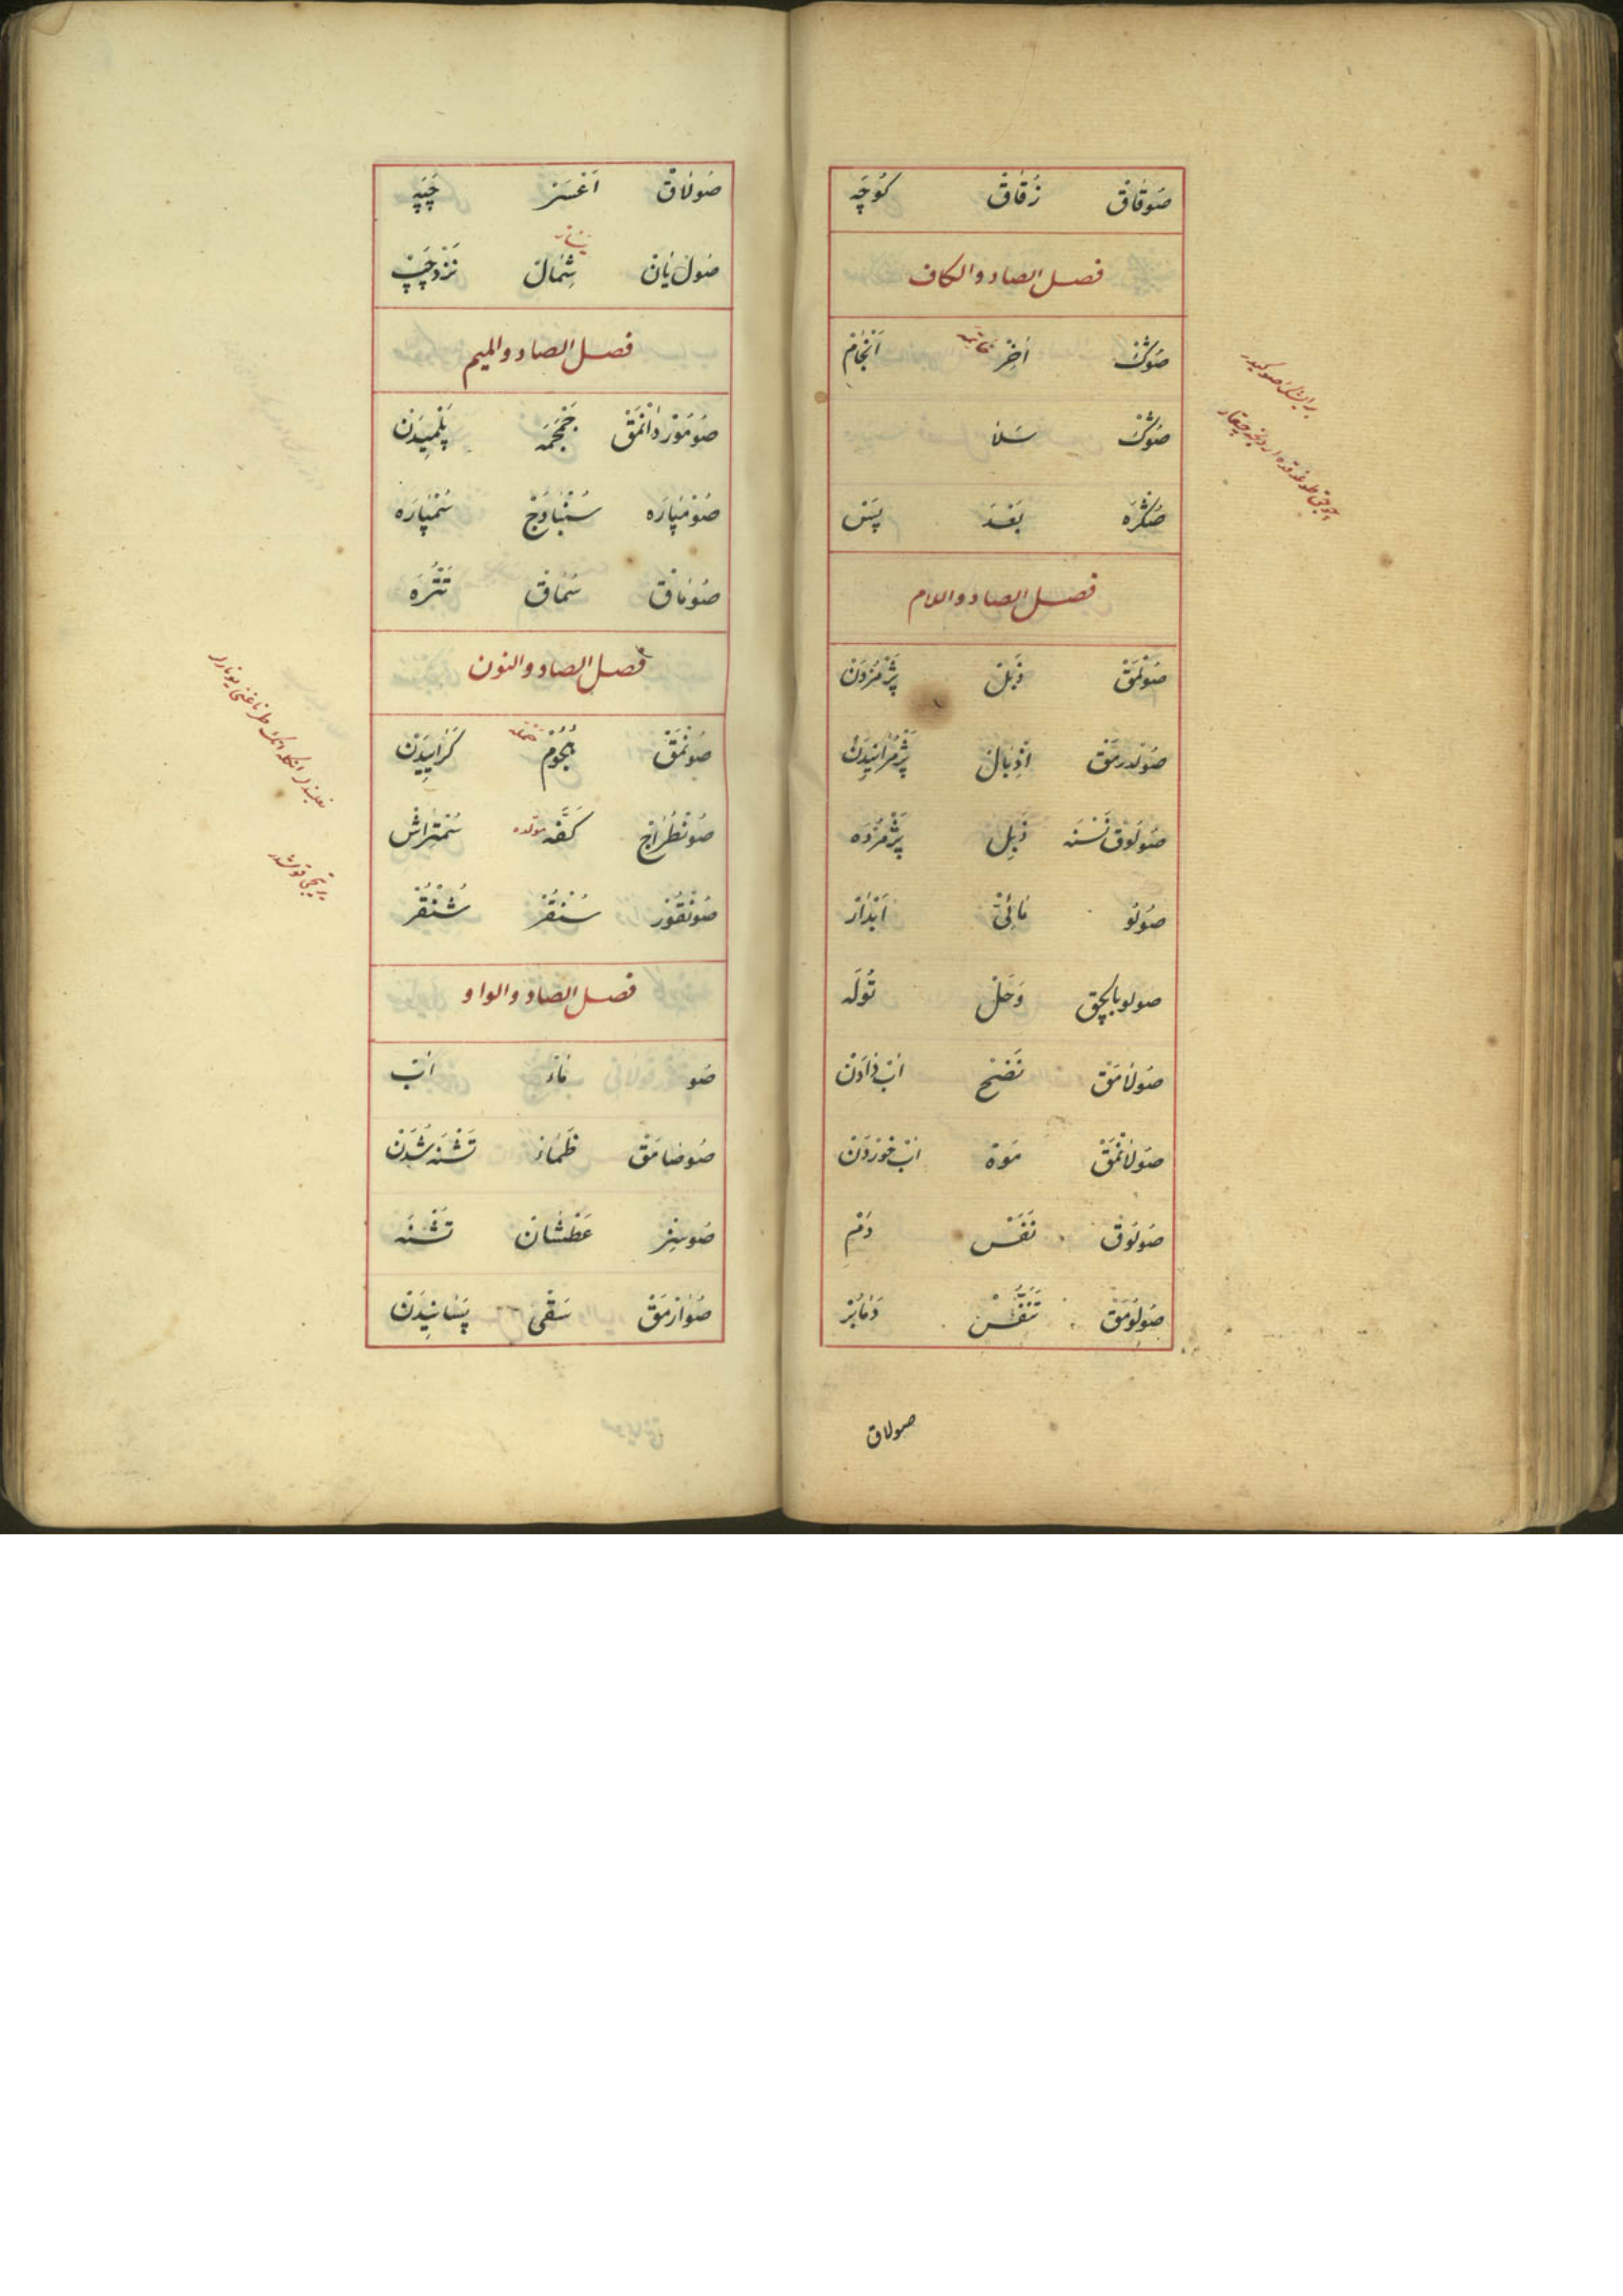 صوقاق زقاق كوچه
فصل الصاد والكاف
صوڭ اخر خاتمه انجام
صوڭ سلا
صڭره بعد پس
فصل الصاد واللام
صولمق ذبل پژمردن
صولدرمق اذبال پژمرانیدن
صولوق نسنه ذبل پژمرده
صولو مائی ابدار
صولو بالچق وحل توله
صولامق نضح اب دادن
صولانمق موه اب خوردن
صولوق نفس دم
صولومق تنفس
صولاق
صولاق اعسر چپه
صول یان شمال نزد چپ
فصل الصاد والمیم
صوموردانمق جمجمه
صومپاره سنبادج سمپاره
صوماق سماق تتره
فصل الصاد والنون
صونمق هجوم
صونطراج كفه مولده سمتراش
صونقور سنقر شنقر
فصل الصاد والواو
صو ماء اب
صوصامق ظماء تشنه شدن
صوسز عطشان تشنه
صوارمق سقی